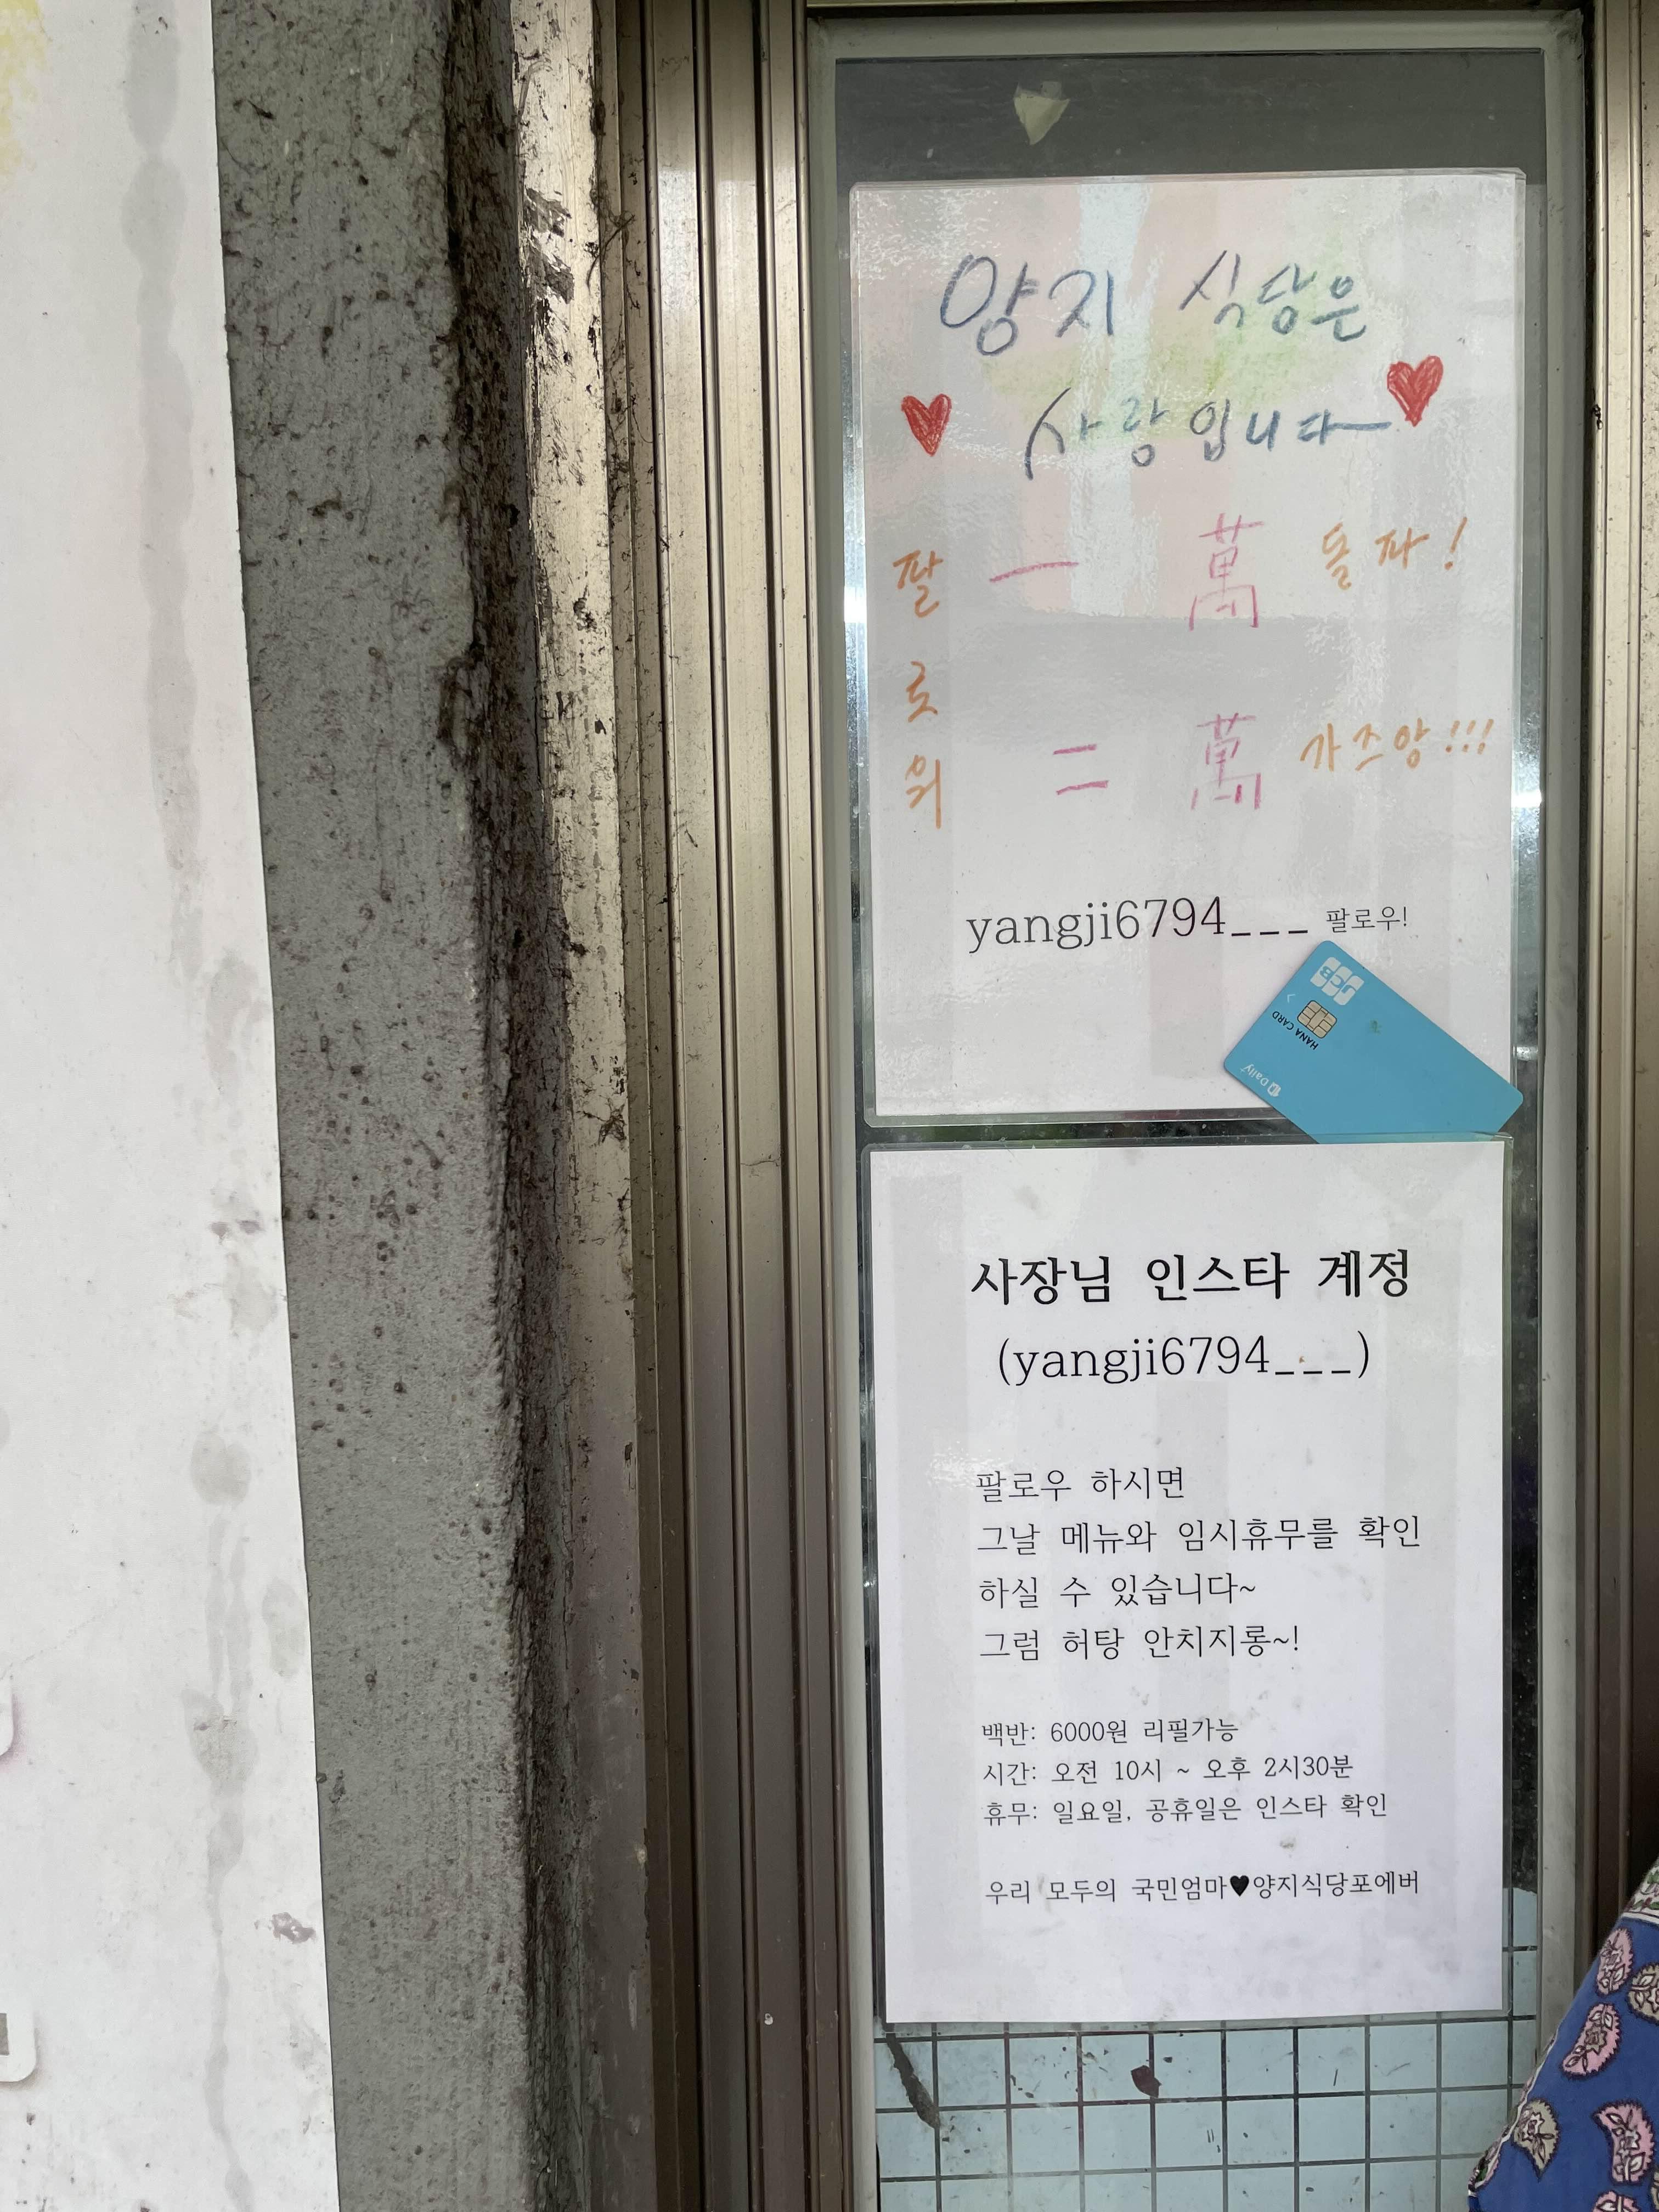 양지 식당은
사랑입니다
팔로워
一萬 돌파!
二萬 가즈앙!!!
yangji6794___ 팔로우!
JCB
HANA CARD
Daily
사장님 인스타 계정
(yangji6794___)
팔로우 하시면
그날 메뉴와 임시휴무를 확인
하실 수 있습니다~
그럼 허탕 안치지롱~!
백반: 6000원 리필가능
시간: 오전 10시 ~ 오후 2시30분
휴무: 일요일, 공휴일은 인스타 확인
우리 모두의 국민엄마♥양지식당포에버